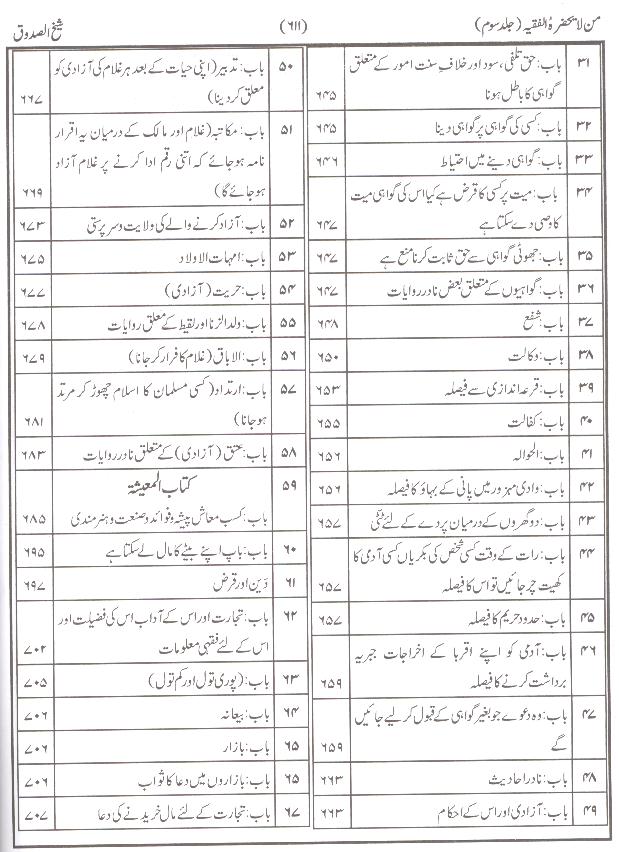 من لا یحضرۂ الفقیہ (جلد سوم)
(۶۱۱)
شیخ الصدوق
۳۱ باب: حق تلفی، سود اور خلافِ سنت امور کے متعلق
گواہی کا باطل ہونا ۶۴۵
۳۲ باب: کسی کی گواہی پر گواہی دینا ۶۴۵
۳۳ باب: گواہی دینے میں احتیاط ۶۴۶
۳۴ باب: میت پر کسی کا قرض ہے کیا اس کی گواہی میت
کا وصی دے سکتا ہے ۶۴۷
۳۵ باب: جھوٹی گواہی سے حق ثابت کرنا منع ہے ۶۴۷
۳۶ باب: گواہیوں کے متعلق بعض نادر روایات ۶۴۷
۳۷ باب: شفع ۶۴۸
۳۸ باب: وکالت ۶۵۰
۳۹ باب: قرعہ اندازی سے فیصلہ ۶۵۳
۴۰ باب: کفالت ۶۵۵
۴۱ باب: الحوالہ ۶۵۶
۴۲ باب: وادی مہزور میں پانی کے بہاؤ کا فیصلہ ۶۵۶
۴۳ باب: دو گھروں کے درمیان پردے کے لئے ٹٹی ۶۵۷
۴۴ باب: رات کے وقت کسی شخص کی بکریاں کسی آدمی کا
کھیت چر جائیں تو اس کا فیصلہ ۶۵۷
۴۵ باب: حدود حریم کا فیصلہ ۶۵۷
۴۶ باب: آدمی کو اپنے اقربا کے اخراجات جبریہ
برداشت کرنے کا فیصلہ ۶۵۹
۴۷ باب: وہ دعوے جو بغیر گواہی کے قبول کر لیے جائیں
گے ۶۵۹
۴۸ باب: نادر احادیث ۶۶۳
۴۹ باب: آزادی اور اس کے احکام ۶۶۳
۵۰ باب: تدبیر (اپنی حیات کے بعد ہر غلام کی آزادی کو
معلق کر دینا) ۶۶۷
۵۱ باب: مکاتبہ (غلام اور مالک کے درمیان یہ اقرار
نامہ ہو جائے کہ اتنی رقم ادا کرنے پر غلام آزاد
ہو جائے گا) ۶۶۹
۵۲ باب: آزاد کرنے والے کی ولایت و سرپرستی ۶۷۳
۵۳ باب: امہات الاولاد ۶۷۵
۵۴ باب: حریت (آزادی) ۶۷۷
۵۵ باب: ولد الزنا اور لقیط کے معلق روایات ۶۷۸
۵۶ باب: الاباق (غلام کا فرار کر جانا) ۶۷۹
۵۷ باب: ارتداد (کسی مسلمان کا اسلام چھوڑ کر مرتد
ہو جانا) ۶۸۱
۵۸ باب: عتق (آزادی) کے متعلق نادر روایات ۶۸۳
۵۹ کتاب المعیشۃ
باب: کسب معاش پیشہ و فوائد و صنعت و ہنر مندی ۶۸۵
۶۰ باب: باپ اپنے بیٹے کا مال لے سکتا ہے ۶۹۵
۶۱ دَین اور قرض ۶۹۷
۶۲ باب: تجارت اور اس کے آداب اس کی فضیلت اور
اس کے لئے فقہی معلومات ۷۰۲
۶۳ باب: (پوری تول اور کم تول) ۷۰۵
۶۴ باب: بیعانہ ۷۰۶
۶۵ باب: بازار ۷۰۶
۶۵ باب: بازاروں میں دعا کا ثواب ۷۰۶
۶۷ باب: تجارت کے لئے مال خریدنے کی دعا ۷۰۷